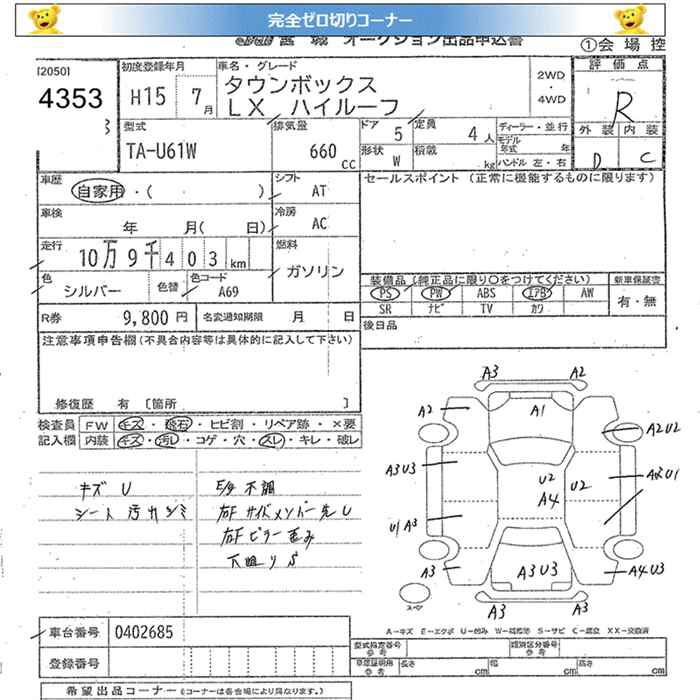 完全ゼロ切りコーナー
オークション出品申込書
①会場控
[2050]
4353
初度登録年月
H15 7月
車名・グレード
タウンボックス
LX ハイルーフ
2WD
・
4WD
評価点
R
外装 内装
D C
型式
TA-U61W
排気量
660 cc
ドア 5
定員 4人
形状 W
積載 kg
ディーラー・並行
モデル年式 年
ハンドル 左・右
車歴
自家用・( )
シフト
AT
セールスポイント (正常に機能するものに限ります)
車検
年 月( 日)
冷房
AC
走行
10万9千403km
燃料
ガソリン
色
シルバー
色替
色コード
A69
装備品 (純正品に限り○をつけてください)
PS PW ABS エアB AW
SR ナビ TV カワ
新車保証書
有・無
R券 9,800円
名変通知期限 月 日
後日品
注意事項申告欄 (不具合内容等は具体的に記入して下さい)
修復歴 有 [箇所 ]
検査員記入欄
FW キズ・飛石・ヒビ割・リペア跡・×要
内装 キズ・汚レ・コゲ・穴・スレ・キレ・破レ
キズ U
シート 汚レ シミ
E/g 不調
右F サイドメンバー先 U
右F ピラー歪み
下廻り S
A3 A2
A2 A1
A2U2
A3U3
U2
A4
U2
A2U1
U1A3
A3
A3U3
A4U3
A3 A3
スペア
A-キズ E-エクボ U-凹み W-補修跡 S-サビ C-腐食 XX-交換済
車台番号 0402685
登録番号
型式指定番号 参考
類別区分番号 参考
車庫証明用 参考
長さ cm
幅 cm
高さ cm
希望出品コーナー (コーナーは各会場により異なります。)